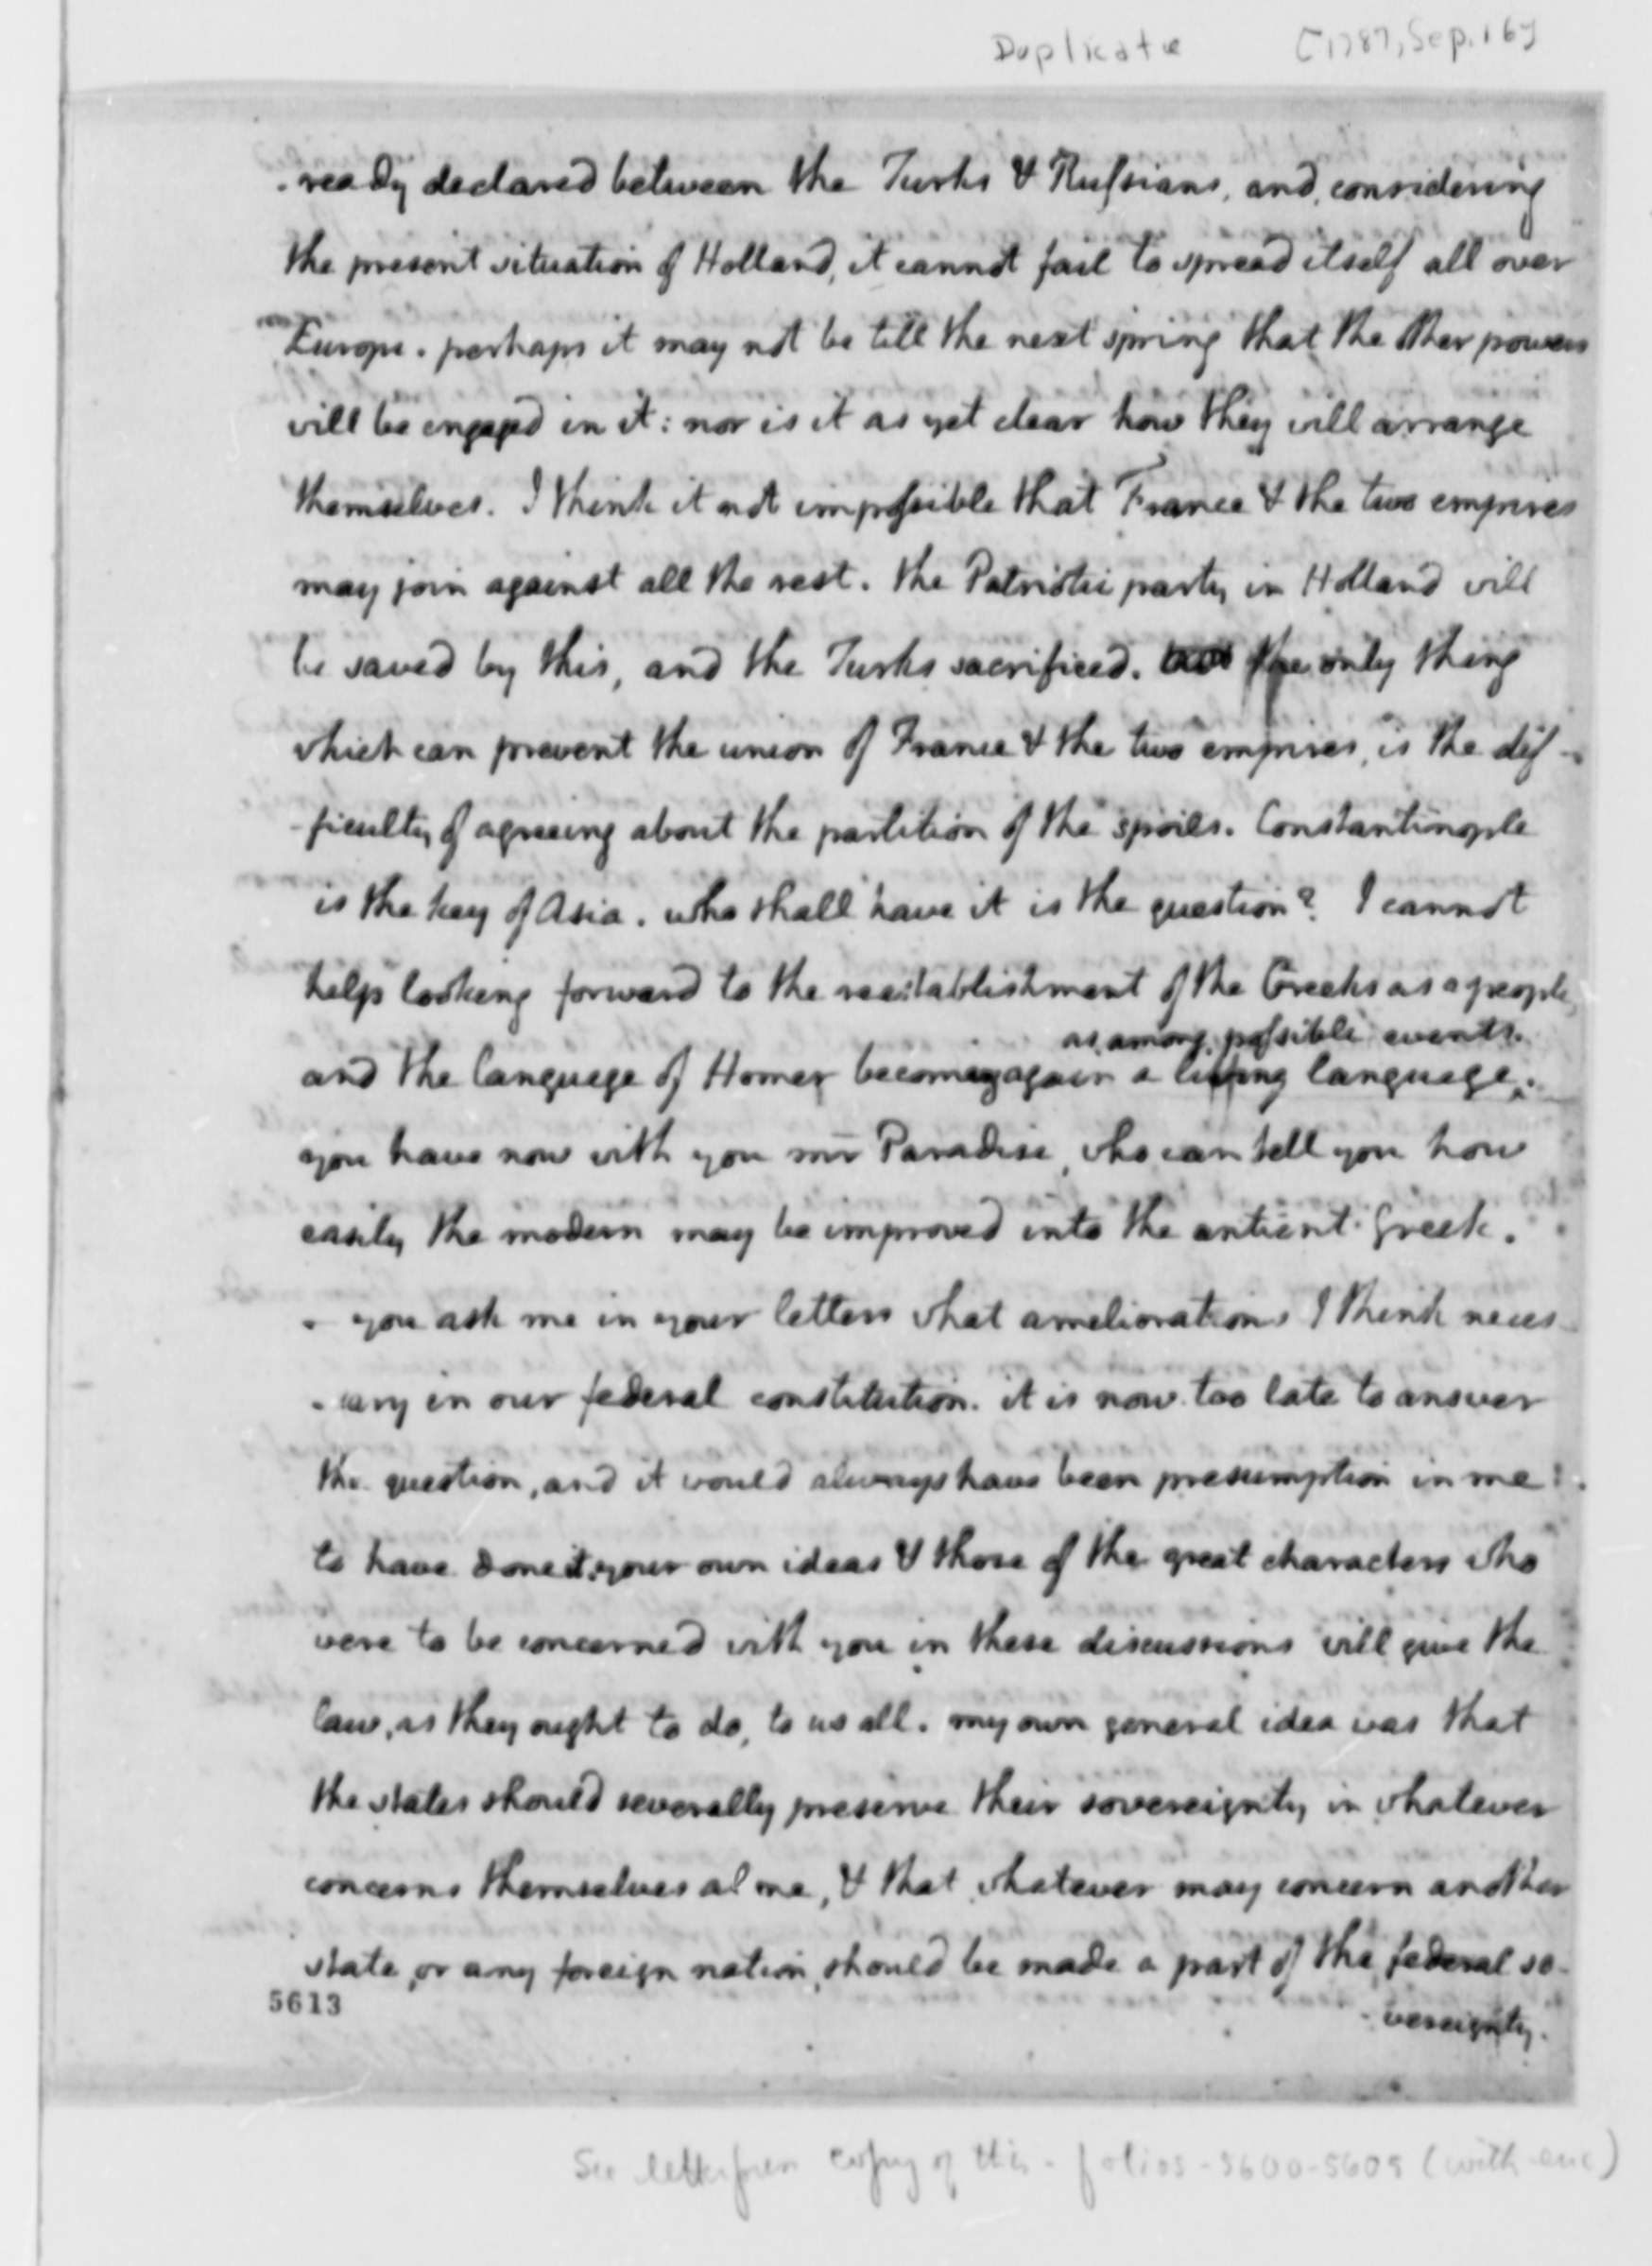 Duplicate [1787, Sep. 16]
-ready declared between the Turks & Russians, and, considering
the present situation of Holland, it cannot fail to spread itself all over
Europe. perhaps it may not be till the next spring that the other powers
will be engaged in it: nor is it as yet clear how they will arrange
themselves. I think it not impossible that France & the two empires
may join against all the rest. the Patriotic party in Holland will
be saved by this, and the Turks sacrificed. the only thing
which can prevent the union of France & the two empires, is the dif-
-ficulty of agreeing about the partition of the spoils. Constantinople
is the key of Asia. who shall have it is the question? I cannot
help looking forward to the reestablishment of the Greeks as a people,
as among possible events.
and the language of Homer becoming again a living language,
you have now with you mr Paradise, who can tell you how
easily the modern may be improved into the antient Greek.
- you ask me in your letters what ameliorations I think neces-
-sary in our federal constitution. it is now too late to answer
the question, and it would always have been presumption in me
to have done it. your own ideas & those of the great characters who
were to be concerned with you in these discussions will give the
law, as they ought to do, to us all. my own general idea was that
the states should severally preserve their sovereignty in whatever
concerns themselves alone, & that whatever may concern another
state, or any foreign nation, should be made a part of the federal so-
5613
-vereignty.
See letterpress copy of this - folios - 5600-5609 (with enc)